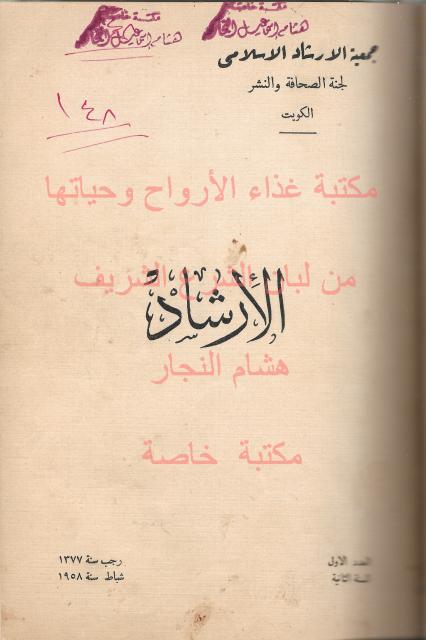 مكتبة خاصة
هشام إسماعيل النجار
مكتبة خاصة
هشام إسماعيل النجار
جمعية الارشاد الاسلامى
لجنة الصحافة والنشر
الكويت
١٤٨
مكتبة غذاء الأرواح وحياتها
من لبان الشرع الشريف
الإرشاد
هشام النجار
مكتبة خاصة
العدد الاول
السنة الثانية
رجب سنة ١٣٧٧
شباط سنة ١٩٥٨